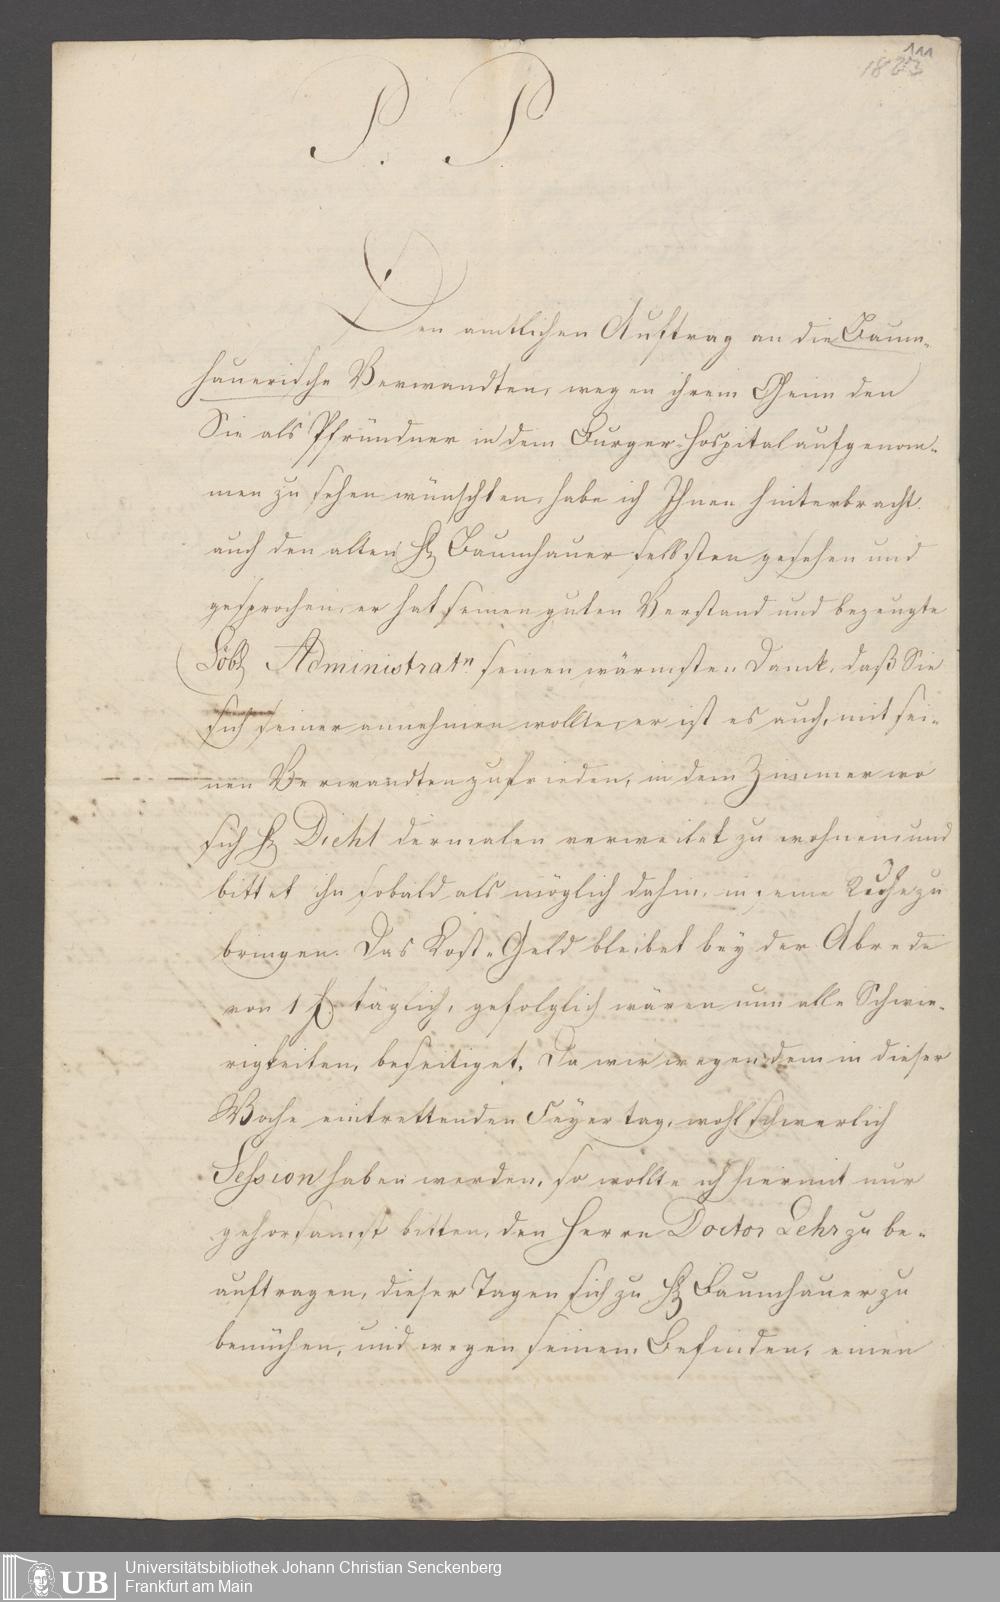 111
1823
P. P
Den amtlichen Auftrag an die Baum-
hauerische Verwandten, wegen ihrem Oheim den
Sie als Pfründner in dem Burger-Hospital aufgenom-
men zu sehen wünschten, habe ich Ihnen hinterbracht.
auch den alten H Baumhauer selbsten gesehen und
gesprochen, er hat seinen guten Verstand und bezeugte
Löbl Administratn seinen wärmsten Danck, daß Sie
sich seiner annehmen wollte, er ist es auch, mit sei-
nen Verwandten zufrieden, in dem Zimmer wo
sich H Diehl dermalen verweilet zu wohnen, und
bittet ihn sobald als möglich dahin, in seine Ruhe zu
bringen. Das Kost-Geld bleibet bey der Abrede
von 1 f täglich, gefolglich wären nun alle Schwie-
rigkeiten, beseitiget. Da wir wegen dem in dieser
Woche eintrettenden Feyertag, wohl schwerlich
Session haben werden, so wollte ich hiermit nur
gehorsamst bitten, den Herrn Doctor Lehr zu be-
auftragen, dieser Tagen sich zu H Baumhauer zu
bemühen, und wegen seinem Befinden, einen
UB
Universitätsbibliothek Johann Christian Senckenberg
Frankfurt am Main